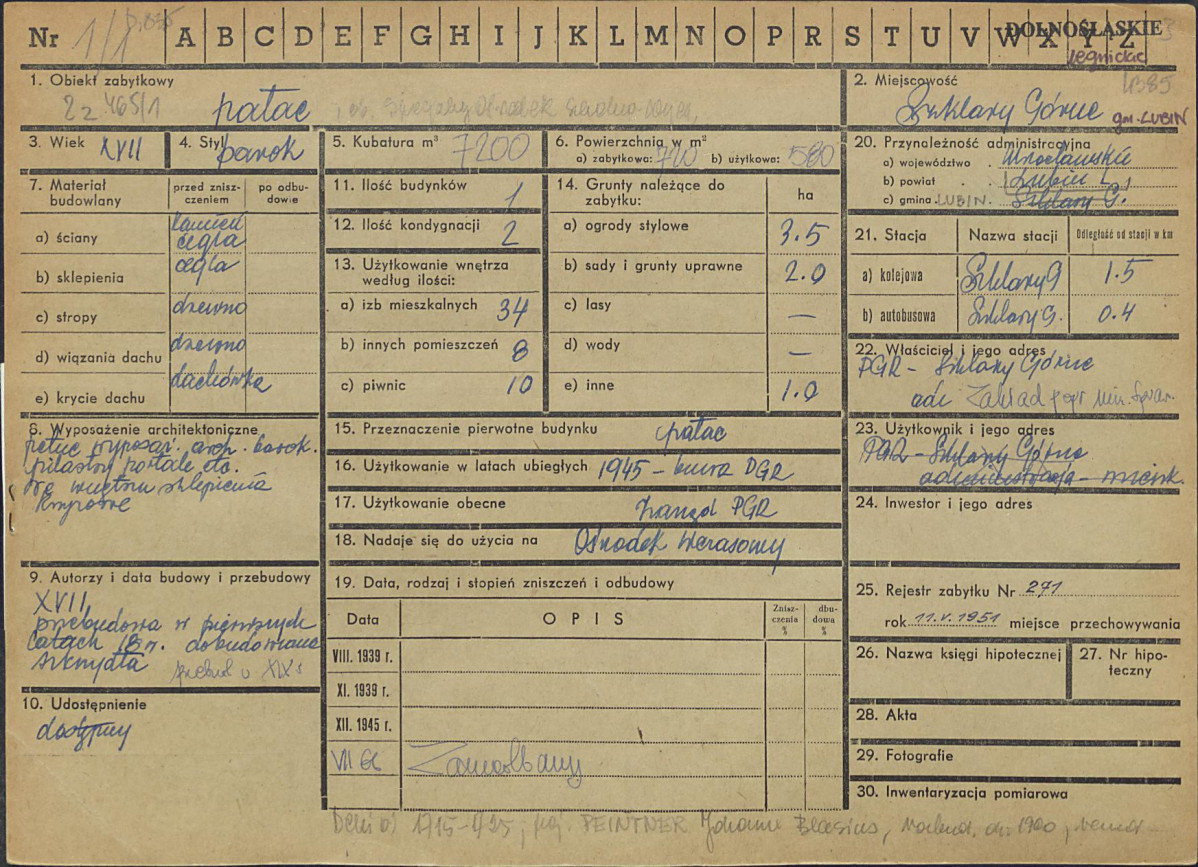 Nr 1/1 A B C D E F G H I J K L M N O P R S T U V W X Y Z DOLNOŚLĄSKIE
legnickie
1. Obiekt zabytkowy
465/1 pałac
2. Miejscowość
Szklary Górne gm. LUBIN
3. Wiek XVII
4. Styl barok
5. Kubatura m³ 7200
6. Powierzchnia w m²
a) zabytkowa: 720 b) użytkowe: 580
20. Przynależność administracyjna
a) województwo Wrocławskie
b) powiat Lubin L.
c) gmina LUBIN Szklary G.
7. Materiał budowlany
przed zniszczeniem
po odbudowie
a) ściany kamień cegła
b) sklepienia cegła
c) stropy drzewno
d) wiązania dachu drzewno
e) krycie dachu dachówka
11. Ilość budynków 1
12. Ilość kondygnacji 2
13. Użytkowanie wnętrza
według ilości:
a) izb mieszkalnych 34
b) innych pomieszczeń 8
c) piwnic 10
14. Grunty należące do
zabytku: ha
a) ogrody stylowe 3.5
b) sady i grunty uprawne 2.0
c) lasy —
d) wody —
e) inne 1.0
21. Stacja Nazwa stacji Odległość od stacji w km
a) kolejowa Szklary G 1.5
b) autobusowa Szklary G. 0.4
22. Właściciel i jego adres
PGR - Szklary Górne
Zakład
8. Wyposażenie architektoniczne
arch. barok.
pilastry portale etc.
we wnętrzu sklepienia
9. Autorzy i data budowy i przebudowy
XVII
przebudowa w pierwszych
latach 18 w. dobudowane
skrzydła
10. Udostępnienie
dostępny
15. Przeznaczenie pierwotne budynku pałac
16. Użytkowanie w latach ubiegłych 1945 - biura PGR
17. Użytkowanie obecne Zarząd PGR
18. Nadaje się do użycia na Ośrodek wczasowy
19. Data, rodzaj i stopień zniszczeń i odbudowy
Data OPIS Zniszczenia % dbudowa %
VIII. 1939 r.
XI. 1939 r.
XII. 1945 r.
VII 66
23. Użytkownik i jego adres
PGR - Szklary Górne
administracja - mieszk.
24. Inwestor i jego adres
25. Rejestr zabytku Nr 271
rok 11.V.1951 miejsce przechowywania
26. Nazwa księgi hipotecznej
27. Nr hipoteczny
28. Akta
29. Fotografie
30. Inwentaryzacja pomiarowa
1715-1725, PEINTNER Johann Blasius,